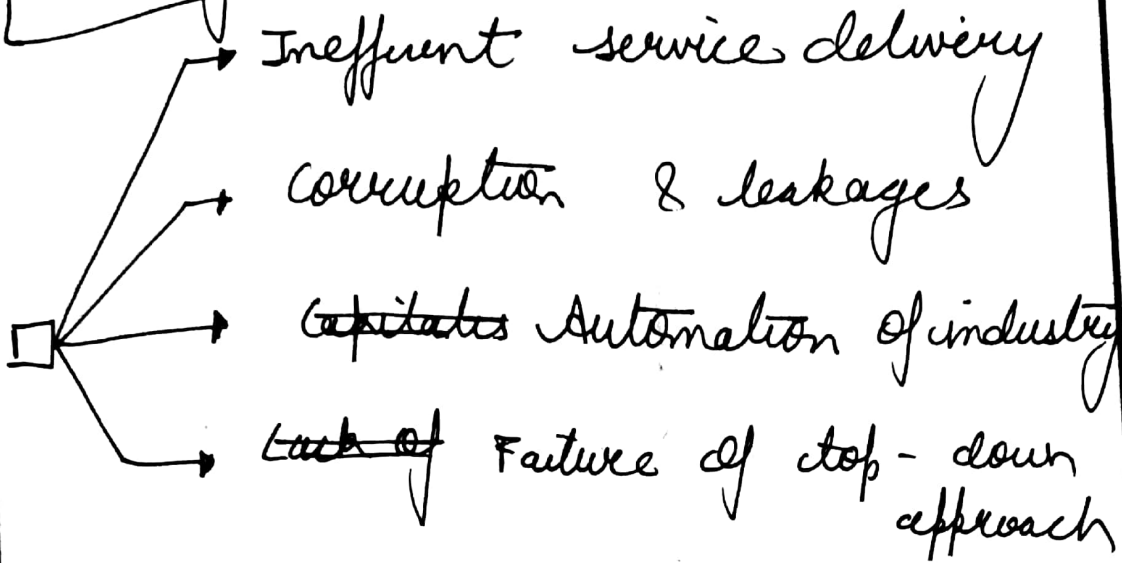 Inefficient service delivery
Corruption & leakages
Automation of industry
Failure of top-down
approach